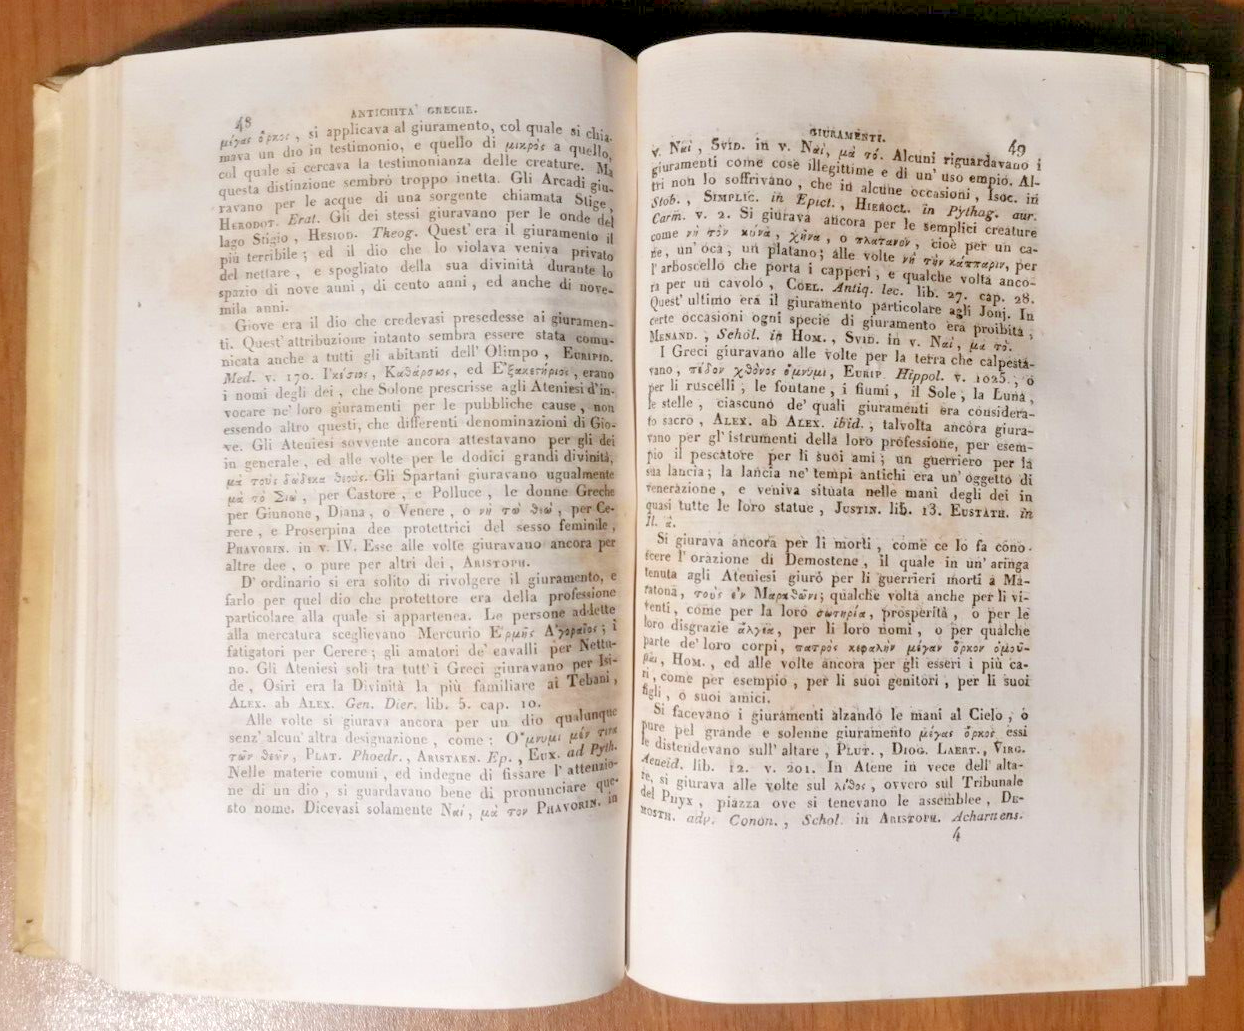 48
ANTICHITA' GRECHE.
μέγας ὅρκος, si applicava al giuramento, col quale si chia-
mava un dio in testimonio, e quello di μικρὸς a quello,
col quale si cercava la testimonianza delle creature. Ma
questa distinzione sembrò troppo inetta. Gli Arcadi giu-
ravano per le acque di una sorgente chiamata Stige,
HERODOT. Erat. Gli dei stessi giuravano per le onde del
lago Stigio, HESIOD. Theog. Quest'era il giuramento il
più terribile; ed il dio che lo violava veniva privato
del nettare, e spogliato della sua divinità durante lo
spazio di nove anni, di cento anni, ed anche di nove-
mila anni.
Giove era il dio che credevasi presedesse ai giuramen-
ti. Quest'attribuzione intanto sembra essere stata comu-
nicata anche a tutti gli abitanti dell'Olimpo, EURIPID.
Med. v. 170. Ἱκέσιος, Καθάρσιος, ed Ἐξακεστήριος, erano
i nomi degli dei, che Solone prescrisse agli Ateniesi d'in-
vocare ne' loro giuramenti per le pubbliche cause, non
essendo altro questi, che differenti denominazioni di Gio-
ve. Gli Ateniesi sovvente ancora attestavano per gli dei
in generale, ed alle volte per le dodici grandi divinità,
μὰ τοὺς δώδεκα θεούς. Gli Spartani giuravano ugualmente
μὰ τὸ Σιώ, per Castore, e Polluce, le donne Greche
per Giunone, Diana, o Venere, o νὴ τὼ θεώ, per Ce-
rere, e Proserpina dee protettrici del sesso feminile,
PHAVORIN. in v. IV. Esse alle volte giuravano ancora per
altre dee, o pure per altri dei, ARISTOPH.
D'ordinario si era solito di rivolgere il giuramento, e
farlo per quel dio che protettore era della professione
particolare alla quale si appartenea. Le persone addette
alla mercatura sceglievano Mercurio Ἑρμῆς Ἀγοραῖος; i
fatigatori per Cerere; gli amatori de' cavalli per Nettu-
no. Gli Ateniesi soli tra tutt'i Greci giuravano per Isi-
de, Osiri era la Divinità la più familiare ai Tebani,
ALEX. ab ALEX. Gen. Dier. lib. 5. cap. 10.
Alle volte si giurava ancora per un dio qualunque
senz'alcun'altra designazione, come: Ὄμνυμι μέν τινα
τῶν θεῶν, PLAT. Phoedr., ARISTAEN. Ep., EUX. ad Pyth.
Nelle materie comuni, ed indegne di fissare l'attenzio-
ne di un dio, si guardavano bene di pronunciare que-
sto nome. Dicevasi solamente Ναί, μὰ τον PHAVORIN. in
GIURAMENTI.
49
v. Ναί, SVID. in v. Ναί, μὰ τό. Alcuni riguardavano i
giuramenti come cose illegittime e di un'uso empio. Al-
tri non lo soffrivano, che in alcune occasioni, ISOC. in
Stob., SIMPLIC. in Epict., HIEROCL. in Pythag. aur.
Carm. v. 2. Si giurava ancora per le semplici creature
come νὴ τὸν κύνα, χῆνα, o πλατανὸν, cioè per un ca-
ne, un'oca, un platano; alle volte νὴ τὴν κάππαριν, per
l'arboscello che porta i capperi, e qualche volta anco-
ra per un cavolo, COEL. Antiq. lec. lib. 27. cap. 28.
Quest'ultimo era il giuramento particolare agli Jonj. In
certe occasioni ogni specie di giuramento era proibita,
MENAND., Schol. in HOM., SVID. in v. Ναί, μὰ τό.
I Greci giuravano alle volte per la terra che calpesta-
vano, πέδον χθονὸς ὄμνυμι, EURIP. Hippol. v. 1025., o
per li ruscelli, le fontane, i fiumi, il Sole, la Luna,
le stelle, ciascuno de' quali giuramenti era considera-
to sacro, ALEX. ab ALEX. ibid., talvolta ancora giura-
vano per gl'istrumenti della loro professione, per esem-
pio il pescatore per li suoi ami; un guerriero per la
sua lancia; la lancia ne' tempi antichi era un'oggetto di
venerazione, e veniva situata nelle mani degli dei in
quasi tutte le loro statue, JUSTIN. lib. 13. EUSTATH. in
Il. ἀ.
Si giurava ancora per li morti, come ce lo fa cono-
scere l'orazione di Demostene, il quale in un'aringa
tenuta agli Ateniesi giurò per li guerrieri morti a Ma-
ratona, τοὺς ἐν Μαραθῶνι; qualche volta anche per li vi-
venti, come per la loro σωτηρία, prosperità, o per le
loro disgrazie ἄλγεα, per li loro nomi, o per qualche
parte de' loro corpi, πατρὸς κεφαλὴν μέγαν ὅρκον ὀμοῦ-
μαι, HOM., ed alle volte ancora per gli esseri i più ca-
ri, come per esempio, per li suoi genitori, per li suoi
figli, o suoi amici.
Si facevano i giuramenti alzando le mani al Cielo, o
pure pel grande e solenne giuramento μέγας ὅρκος essi
le distendevano sull'altare, PLUT., DIOG. LAERT., VIRG.
Aeneid. lib. 12. v. 201. In Atene in vece dell'alta-
re, si giurava alle volte sul λίθος, ovvero sul Tribunale
del Pnyx, piazza ove si tenevano le assemblee, DE-
MOSTH. adv. Conon., Schol. in ARISTOPH. Acharnens.
4